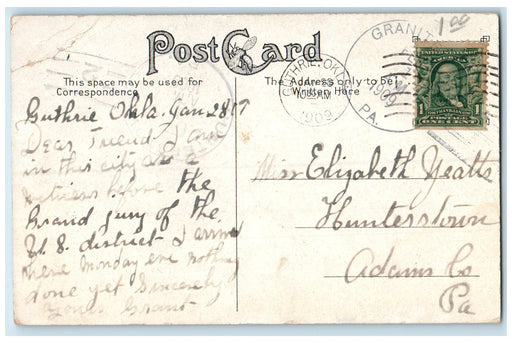 1.00
Post Card
This space may be used for
Correspondence
The Address only to be
Written Here
GUTHRIE, OKLA.
10 AM
1909
GRANITE
1909
PA.
1 1
POSTAGE
ONE CENT
Guthrie Okla. Jan 28
Dear Friend I am
in this city as a
witness before the
Grand jury of the
U.S. district I arrived
here Monday eve nothing
done yet Sincerely
Yours Grant
Miss Elizabeth Yeatts
Hunterstown
Adams Co
Pa